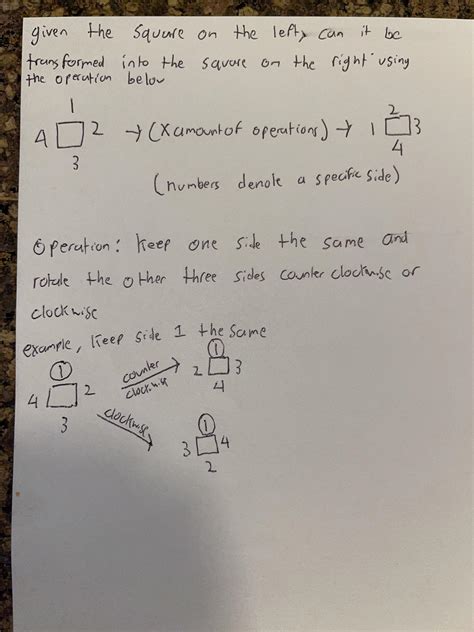 given the square on the left, can it be
transformed into the square on the right using
the operation below
1
4 2 → (X amount of operations) → 1 2 3
3 4
(numbers denote a specific side)
Operation: Keep one side the same and
rotate the other three sides counter clockwise or
clockwise
example, Keep side 1 the same
1 counter clockwise 1
4 2 2 3
3 4
clockwise 1
3 4
2